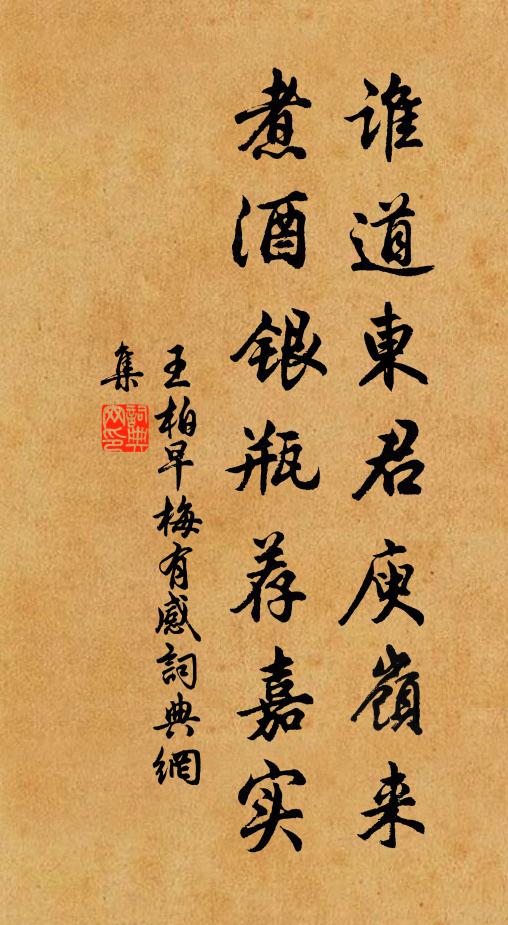 谁道東君庾嶺来
煮酒银瓶荐嘉实
王柏早梅有感詞典網
集
詞典
网印